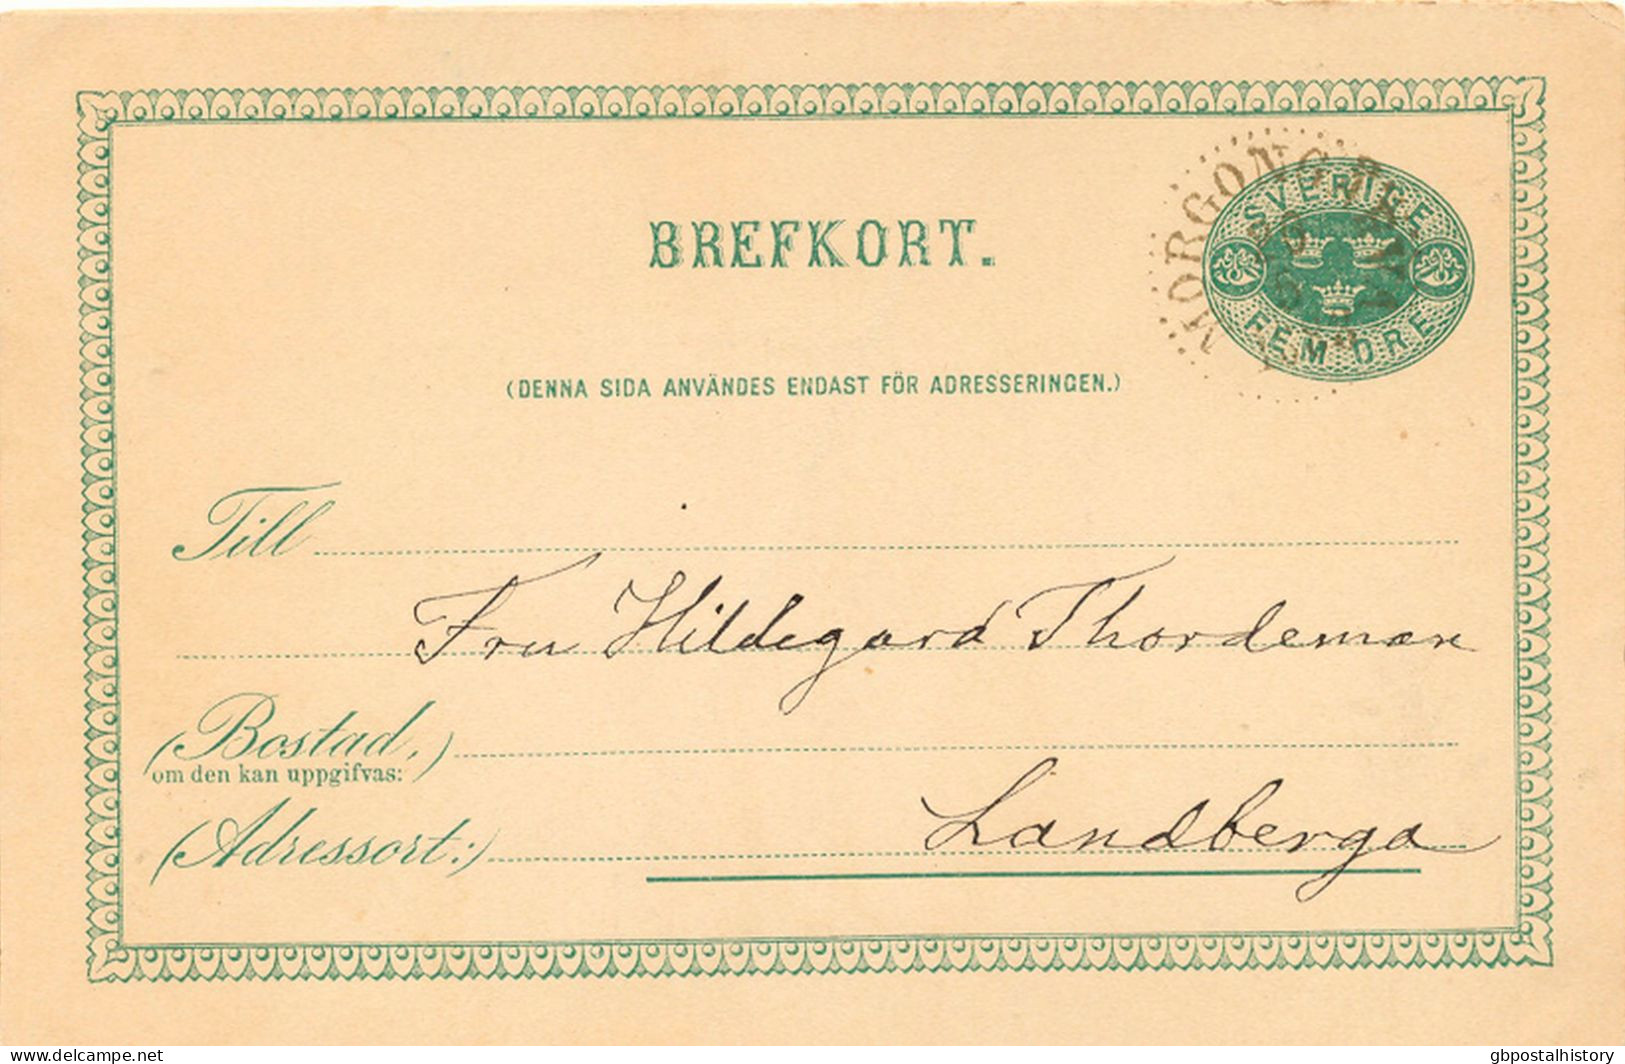 BREFKORT.
SVERIGE
FEM ÖRE
(DENNA SIDA ANVÄNDES ENDAST FÖR ADRESSERINGEN.)
Till
Fru Hildegard Thordeman
(Bostad,)
om den kan uppgifvas:
(Adressort:)
Landberga
Delcampe.net
gbpostalhistory